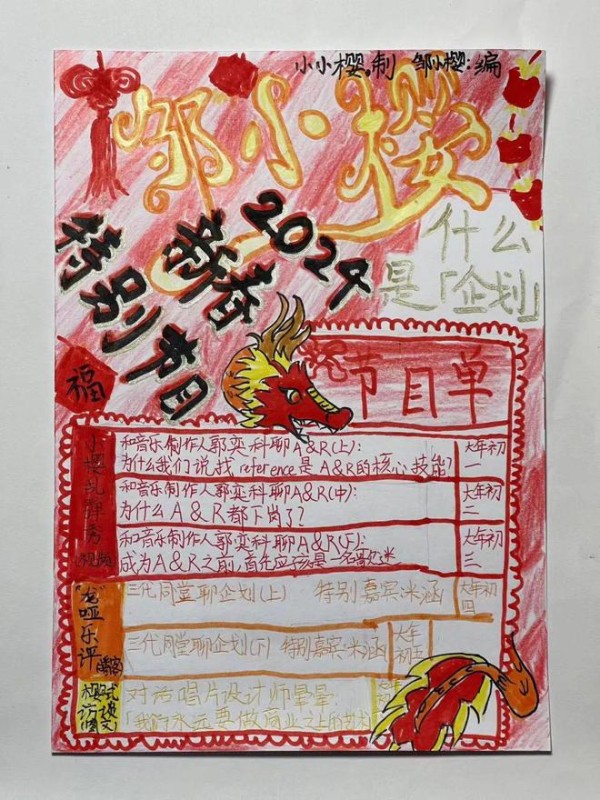 小小樱。制 邹小樱:编
邹小樱
2024
新春
特别节目
什么
是「企划」
福
节目单
小樱乱弹秀
视频
和音乐制作人郭奕科聊A&R(上):
为什么我们说,找reference是A&R的核心技能?
大年初一
和音乐制作人郭奕科聊A&R(中):
为什么A&R都下岗了?
大年初二
和音乐制作人郭奕科聊A&R(下):
成为A&R之前,首先应该是一名歌迷
大年初三
"龙"哑乐评
播客
三代同堂聊企划(上) 特别嘉宾:米涵
大年初四
三代同堂聊企划(下) 特别嘉宾:米涵
大年初五
樱式访谈
对话唱片设计师晕晕:
「我们永远要做商业之上的艺术